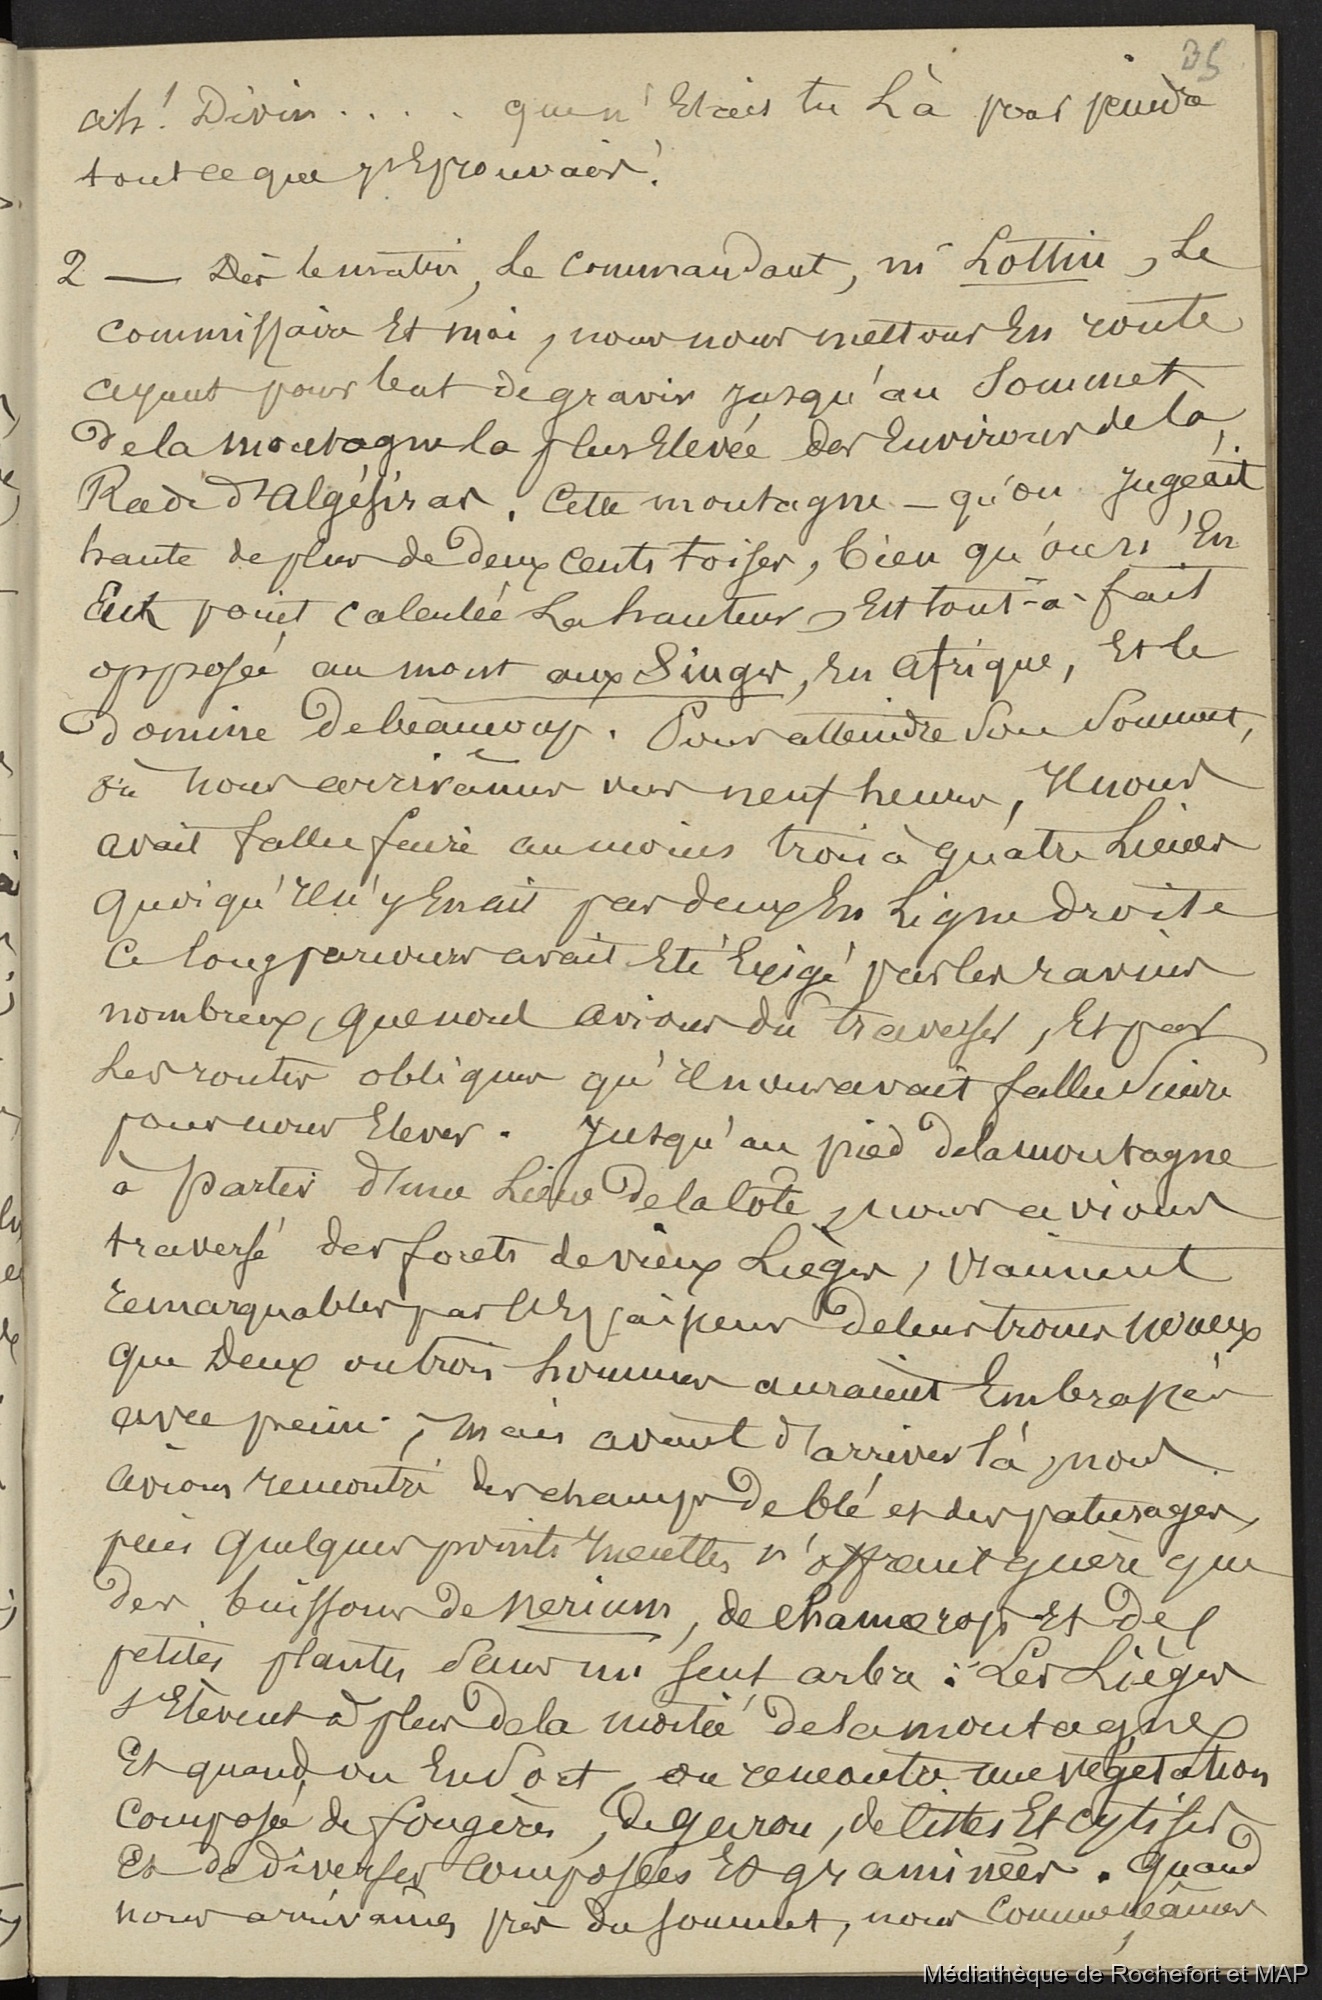 35
ah! Divin . . . . que n'Etais tu Là pour peindre
tout ce que j'Eprouvais!
2 — Dès le matin, Le Commandant, mr Lottin, Le
Commissaire Et moi, nous nous mettons En route
ayant pour but de gravir jusqu'au Sommet
De la montagne la plus Elevée des Environs de la
Rade d'Algésiras. Cette montagne — qu'on jugeait
haute de plus de Deux cents toises, bien qu'on n'En
Eut point calculée La hauteur, Est tout-à-fait
opposée au mont aux Singes, En afrique, Et le
Domine De beaucoup. Pour atteindre Son Sommet,
où nous arrivâmes vers neuf heures, Il nous
avait fallu faire au moins trois à quatre Lieues
quoiqu'Il n'y En ait pas deux En Ligne droite
Ce long parcours avait Eté Exigé par les ravins
nombreux, que nous avions du traverser, Et par
Les routes obliques qu'Il nous avait fallu Suivre
pour nous Elever. Jusqu'au pied De la montagne
à Partir d'une Lieue De la Côte, nous avions
traversé des forets de vieux Lièges, vraiment
remarquables par l'Epaisseur De leurs troncs noueux
que Deux ou trois hommes auraient Embrassés
avec peine; mais avant d'arriver là, nous
avions rencontré des champs De blé et des paturages,
puis quelques points Incultes n'offrant guère que
Des buissons de Nerium, de Chamærops Et De
petites plantes Sans un seul arbre: Les Lièges
s'Elèvent à plus De la moitié De la montagne
Et quand on En Sort, on rencontre une végétation
Composée de fougères, de garou, de Cistes Et Cytises
Et de Diverses Composées Et graminées. Quand
nous arrivâmes près du Sommet, nous Commençâmes
Médiathèque de Rochefort et MAP